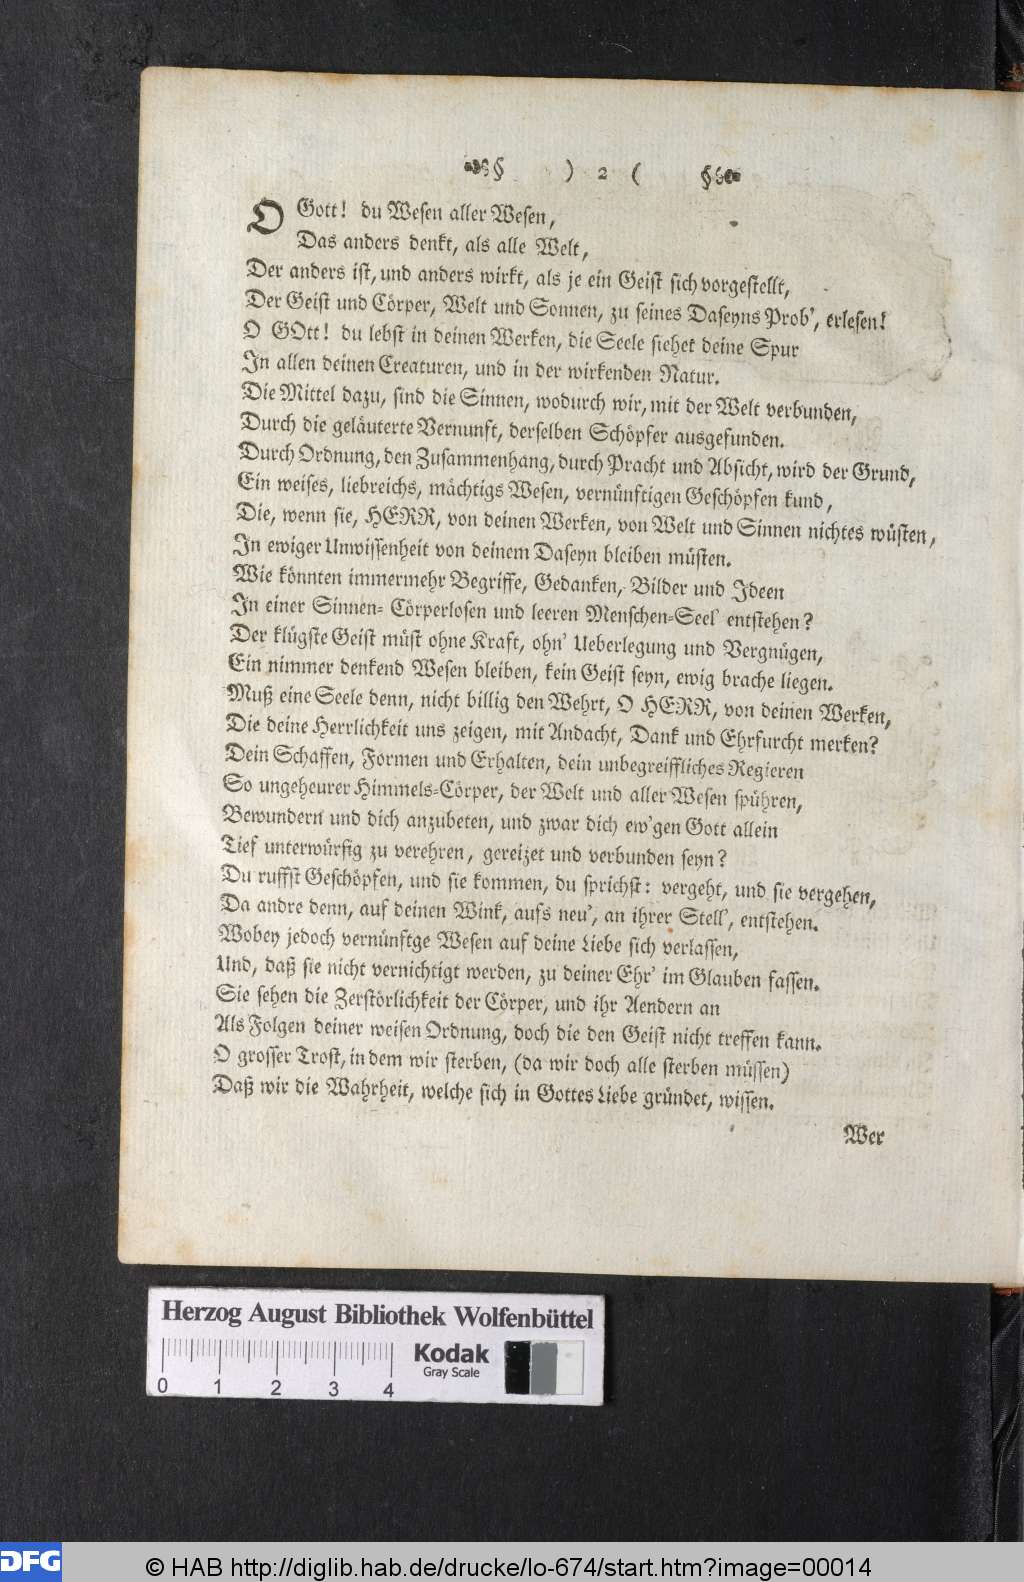 ) 2 (
O Gott! du Wesen aller Wesen,
Das anders denkt, als alle Welt,
Der anders ist, und anders wirkt, als je ein Geist sich vorgestellt,
Der Geist und Cörper, Welt und Sonnen, zu seines Daseyns Prob', erlesen!
O GOtt! du lebst in deinen Werken, die Seele siehet deine Spur
In allen deinen Creaturen, und in der wirkenden Natur.
Die Mittel dazu, sind die Sinnen, wodurch wir, mit der Welt verbunden,
Durch die geläuterte Vernunft, derselben Schöpfer ausgefunden.
Durch Ordnung, den Zusammenhang, durch Pracht und Absicht, wird der Grund,
Ein weises, liebreichs, mächtigs Wesen, vernünftigen Geschöpfen kund,
Die, wenn sie, HERR, von deinen Werken, von Welt und Sinnen nichtes wüsten,
In ewiger Unwissenheit von deinem Daseyn bleiben müsten.
Wie könnten immermehr Begriffe, Gedanken, Bilder und Ideen
In einer Sinnen- Cörperlosen und leeren Menschen-Seel' entstehen?
Der klügste Geist müst ohne Kraft, ohn' Ueberlegung und Vergnügen,
Ein nimmer denkend Wesen bleiben, kein Geist seyn, ewig brache liegen.
Muß eine Seele denn, nicht billig den Wehrt, O HERR, von deinen Werken,
Die deine Herrlichkeit uns zeigen, mit Andacht, Dank und Ehrfurcht merken?
Dein Schaffen, Formen und Erhalten, dein unbegreiffliches Regieren
So ungeheurer Himmels-Cörper, der Welt und aller Wesen spühren,
Bewundern und dich anzubeten, und zwar dich ew'gen Gott allein
Tief unterwürfig zu verehren, gereizet und verbunden seyn?
Du ruffst Geschöpfen, und sie kommen, du sprichst: vergeht, und sie vergehen,
Da andre denn, auf deinen Wink, aufs neu', an ihrer Stell', entstehen.
Wobey jedoch vernünftge Wesen auf deine Liebe sich verlassen,
Und, daß sie nicht vernichtigt werden, zu deiner Ehr' im Glauben fassen.
Sie sehen die Zerstörlichkeit der Cörper, und ihr Aendern an
Als Folgen deiner weisen Ordnung, doch die den Geist nicht treffen kann.
O grosser Trost, in dem wir sterben, (da wir doch alle sterben müssen)
Daß wir die Wahrheit, welche sich in Gottes Liebe gründet, wissen.
Wer
Herzog August Bibliothek Wolfenbüttel
Kodak
Gray Scale
0 1 2 3 4
DFG
© HAB http://diglib.hab.de/drucke/lo-674/start.htm?image=00014